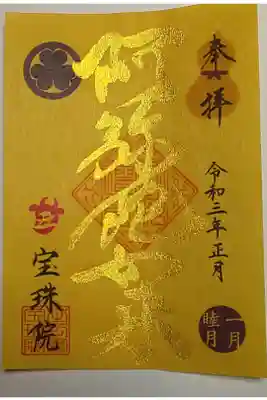 奉拝
令和三年正月
一月
睦月
阿弥陀如来
宝珠院